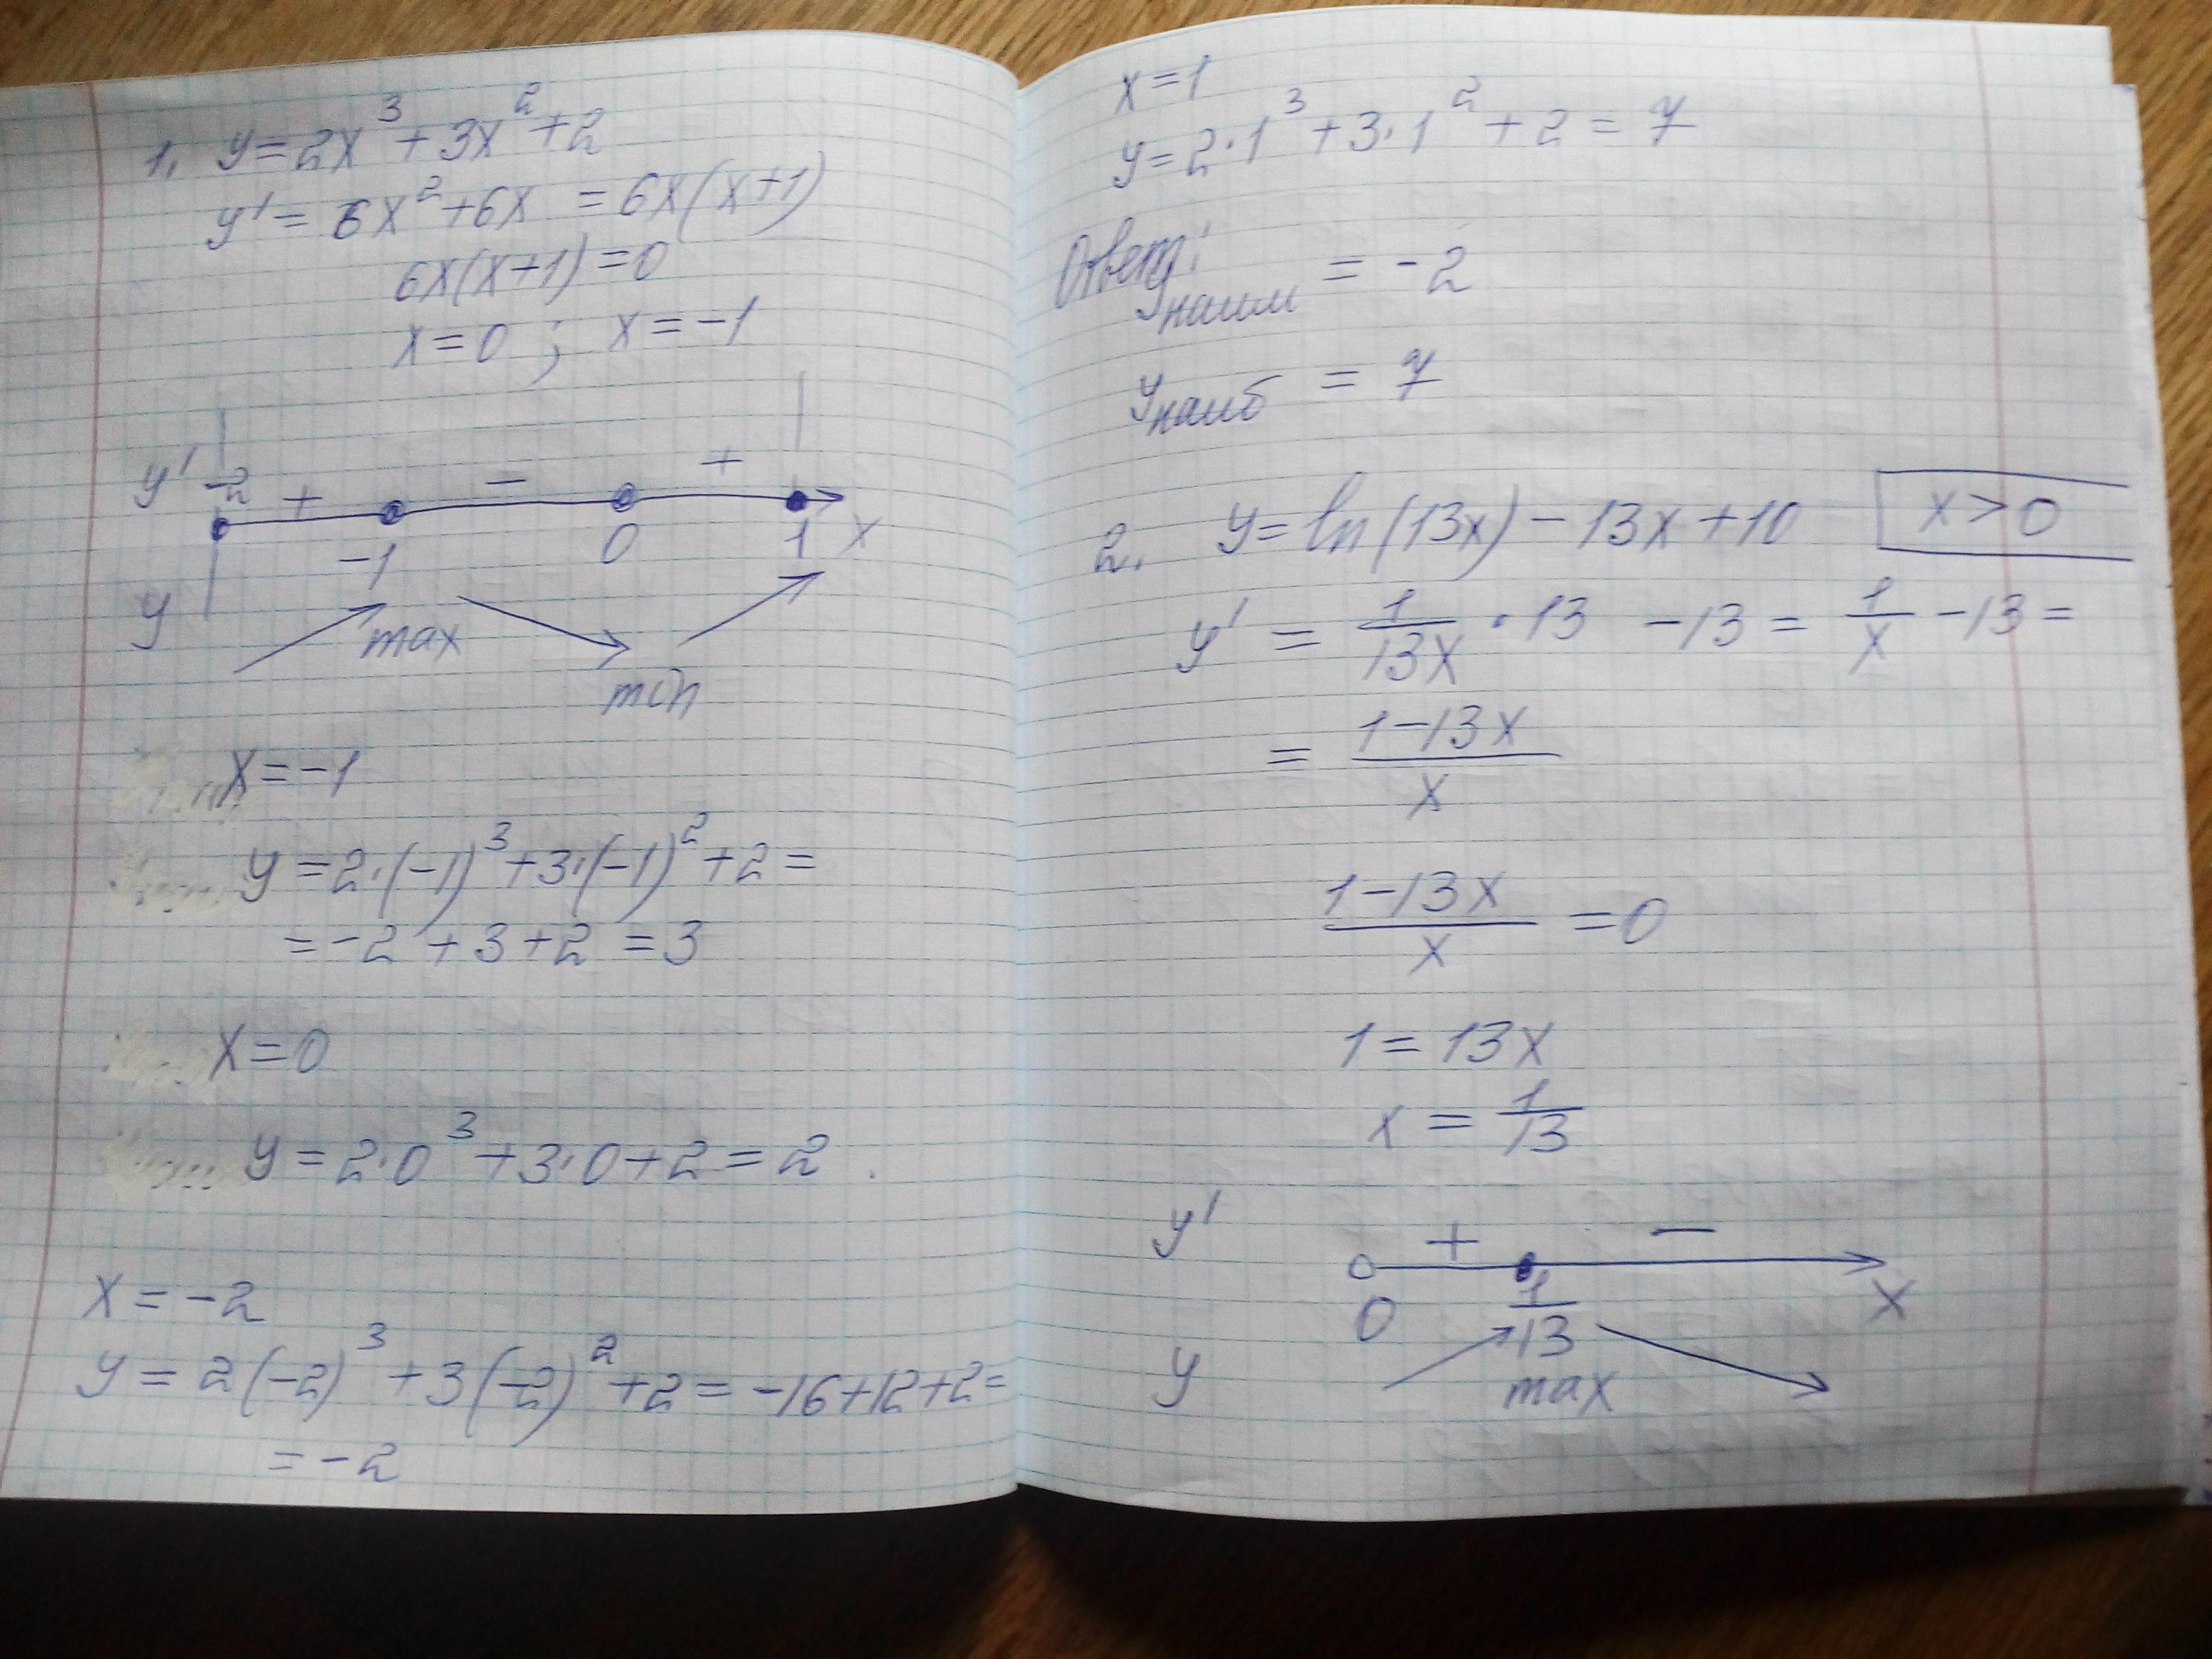 1. y=2x³+3x²+2
y'=6x²+6x =6x(x+1)
6x(x+1)=0
x=0 ; x=-1
y' -2 + - +
-1 0 1 x
y max
min
x=-1
y=2·(-1)³+3·(-1)²+2=
=-2+3+2=3
x=0
y=2·0³+3·0+2=2.
x=-2
y=2(-2)³+3(-2)²+2=-16+12+2=
=-2
x=1
y=2·1³+3·1²+2=7
Ответ:
yнаим = -2
yнаиб = 7
2. y=ln(13x)-13x+10 x>0
y' = 1/13x · 13 -13 = 1/x -13 =
= 1-13x/x
1-13x/x =0
1=13x
x = 1/13
y' + -
0 1/13 x
y max